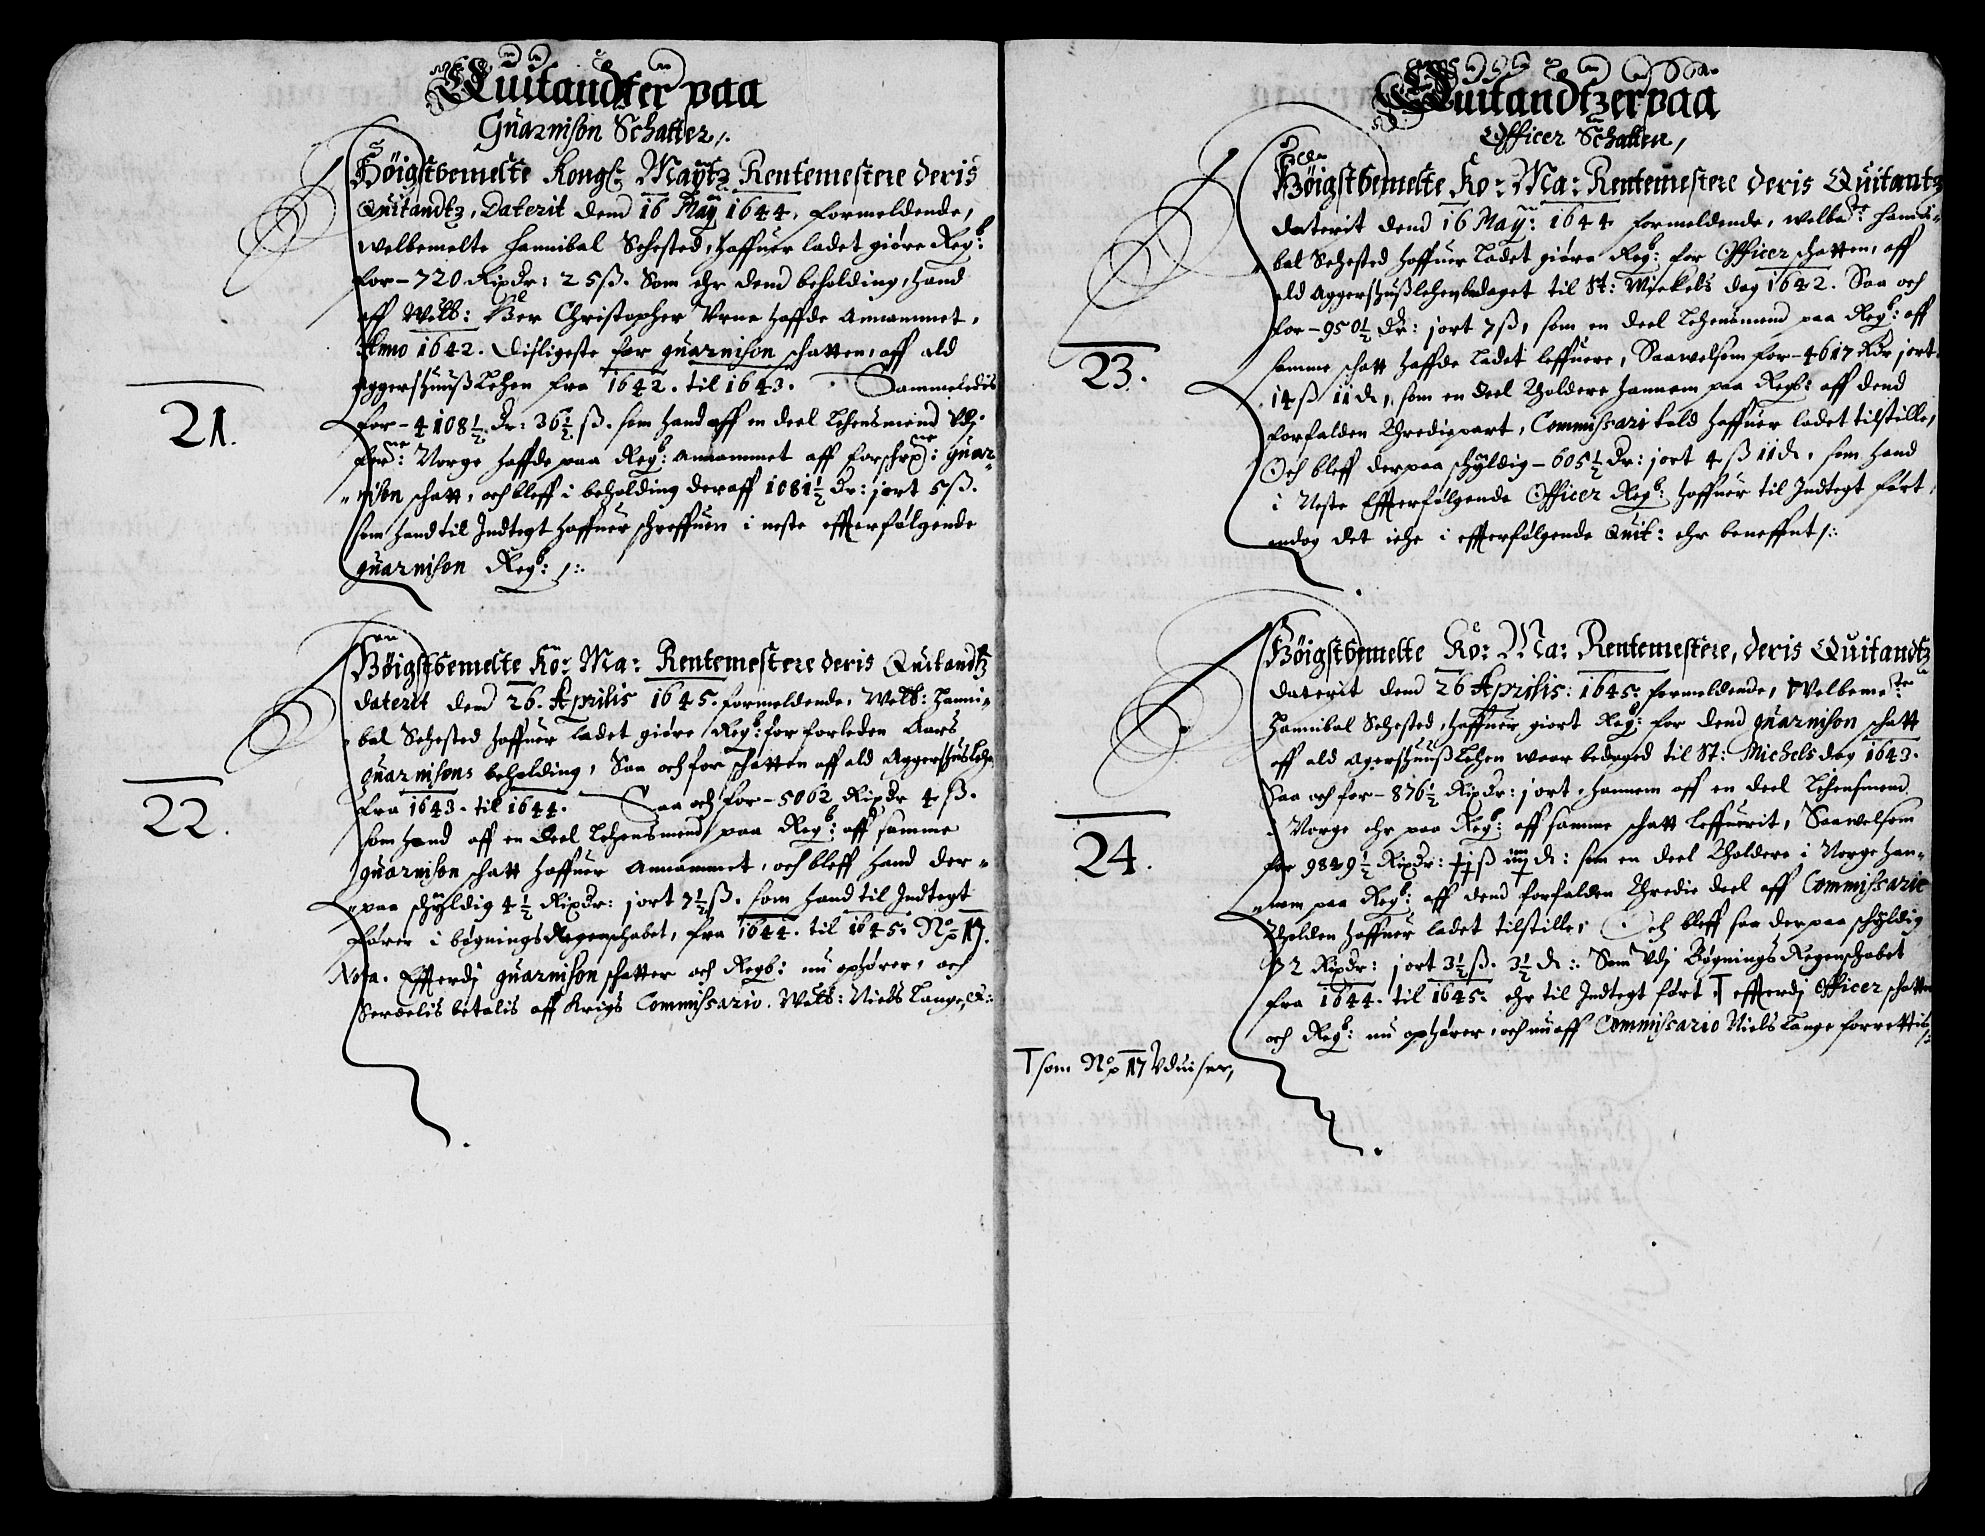 Quitandtzer paa
Guarnison Schatter,
Høigstbemelte Kongl: Maytz Rentemestere deris
Quitandtz, Daterit dend 16 May 1644, formeldende,
welbemelte Hannibal Sehested, haffuer ladet giøre Regb:
for - 720 Rixdr: 25 ß. Som ehr dend beholding, hand
aff Welb: Her Christopher Vrne haffde Annammet,
Anno 1642. Disligeste for guarnison schatten, aff ald
AggershuußLehen fra 1642. til 1643. Sammeledis
for - 4108½ Dr: 36½ ß. som hand aff en deel Lehensmend vdj
Norge haffde paa Regb: annammet aff forschrne: guar-
nison schatt, och bleff i beholding deraff 1081½ Dr: jort 5 ß.
som hand til Indtegt haffuer schreffuen i neste effterfølgende
guarnison Regb:
21.
Høigstbemelte Ko: Ma: Rentemestere deris Quitandtz
daterit dend 26. Aprilis 1645. formeldende, Welb: Hanni-
bal Sehested haffuer ladet giøre Regb: for forleden Aars
guarnisons beholding, Saa och for schatten aff ald AggershusLehn
fra 1643. til 1644. Saa och for - 5062 Rixdr 4 ß.
som hand aff en Deel Lehensmend paa Regb: aff samme
guarnison schatt haffuer Annammet, och bleff hand der-
paa schyldig 4½ Rixdr: jort 7½ ß. som hand til Indtegt
fører i bøgnings Regenschabet, fra 1644. til 1645. No 17.
Nota. Effterdj guarnison schatter och Regb: nu ophører, och
Serdelis betalis aff Krigs Commissario. Welb: Niels Lange,
22.
Quitandtzer paa
Officer Schatten,
Høigstbemelte Ko: Ma: Rentemestere deris Quitantz
daterit dend 16 May: 1644 formeldende, welbete: Hanni-
bal Sehested haffuer ladet giøre Regb: for Officer schatten, aff
ald Aggershußlehen bedaget til St: Mickels dag 1642. Saa och
for - 950½ Dr: jort 7 ß, som en deel Lehensmend paa Regb: aff
samme schatt haffde ladet leffuere, Saawelsom for - 4617 Rdr jort
14 ß 11 d, som en deel Vholdere hannem paa Regb: aff dend
forfalden Thrediepart, Commissari told haffuer ladet tilstille,
Och bleff derpaa schyldig - 605½ Dr: jort 4 ß 11 d, som hand
i Neste Effterfølgende Officer Regb: haffuer til Indtegt ført,
endog det iche i effterfølgende Quit: ehr beneffnt
23.
Høigstbemelte Ko: Ma: Rentemestere, deris Quitandtz
daterit dend 26 Aprilis: 1645: formeldende, Welbemete
Hannibal Sehested, haffuer giort Regb: for dend guarnison schatt
aff ald AgershuußLehen waar bedaged til St: Michels dag 1643.
Saa och for - 876½ Rixdr: jort, hannem aff en deel Lehensmend
i Norge ehr paa Regb: aff samme schatt leffuerit, Saawelsom
for 9849½ Rixdr: ß d: som en deel Vholdere i Norge Han-
nem paa Regb: aff dend forfalden Thredie deel aff Commissarie
Tholden haffuer ladet tilstille, Och bleff saa derpaa schyldig
72 Rixdr: jort 3½ ß. 3½ d: Som vdj Bøgnings Regenschabet
fra 1644. til 1645. ehr til Indtegt ført T effterdj Officer schatten
och Regb: nu ophører, och nu aff Commissario Niels Lange forrettis
24.
T som No 17 Vduiser,